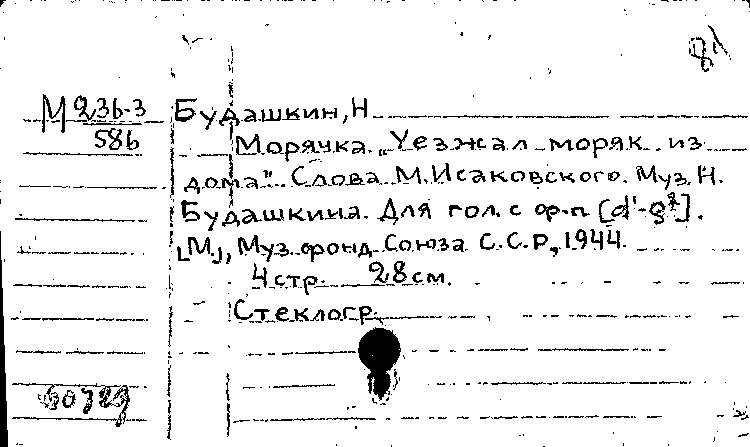 М 236-3
586
Будашкин, Н
Морячка. „Уезжал моряк из
дома". Слова М. Исаковского. Муз. Н.
Будашкина. Для гол. с ф.-п. [d¹-g²].
[М], Муз. фонд Союза С.С.Р., 1944.
4 стр. 28 см.
Стеклогр.